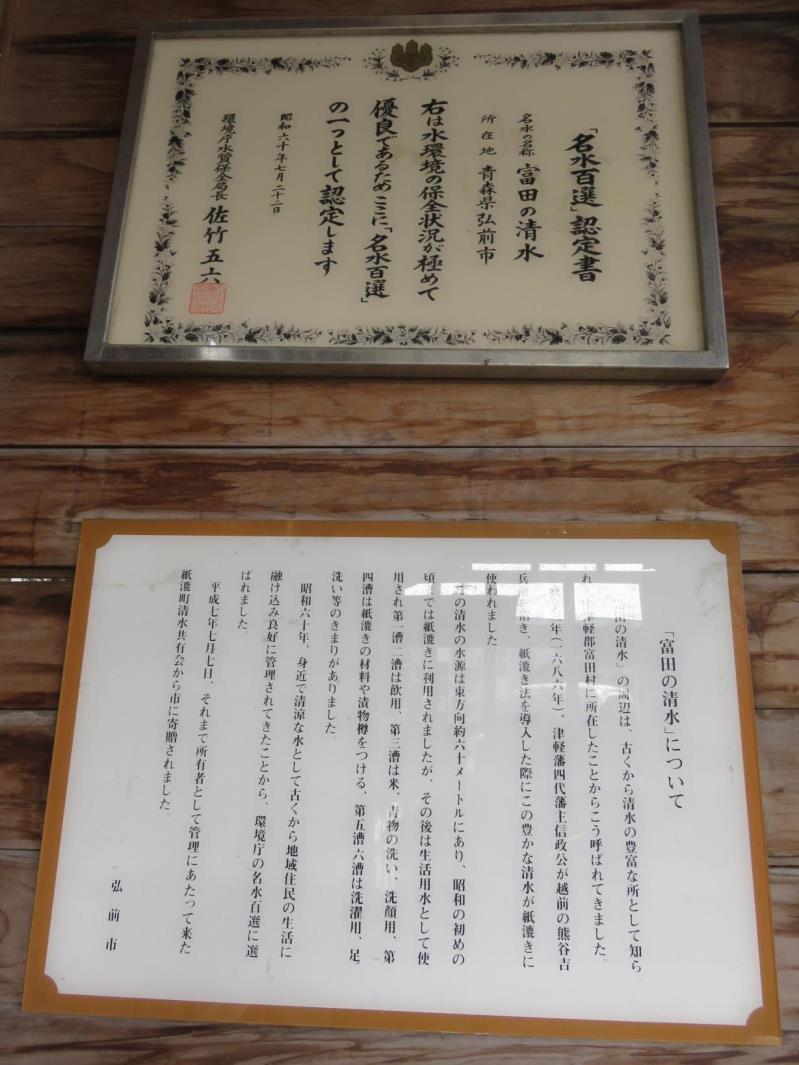 「名水百選」認定書
名水の名称 富田の清水
所在地 青森県弘前市
右は水環境の保全状況が極めて
優良であるためここに「名水百選」
の一つとして認定します
昭和六十年七月二十二日
環境庁水質保全局長 佐竹五六
「富田の清水」について
田の清水」の周辺は、古くから清水の豊富な所として知ら
れ 津軽郡富田村に所在したことからこう呼ばれてきました。
年(一六八六年)、津軽藩四代藩主信政公が越前の熊谷吉
兵 を招き、紙漉き法を導入した際にこの豊かな清水が紙漉きに
使われました
の清水の水源は東方向約六十メートルにあり、昭和の初めの
頃 では紙漉きに利用されましたが、その後は生活用水として使
用され第一漕二漕は飲用、第三漕は米、青物の洗い、洗顔用、第
四漕は紙漉きの材料や漬物樽をつける、第五漕六漕は洗濯用、足
洗い等のきまりがありました。
昭和六十年、身近で清涼な水として古くから地域住民の生活に
融け込み良好に管理されてきたことから、環境庁の名水百選に選
ばれました。
平成七年七月七日、それまで所有者として管理にあたって来た
紙漉町清水共有会から市に寄贈されました。
弘前市